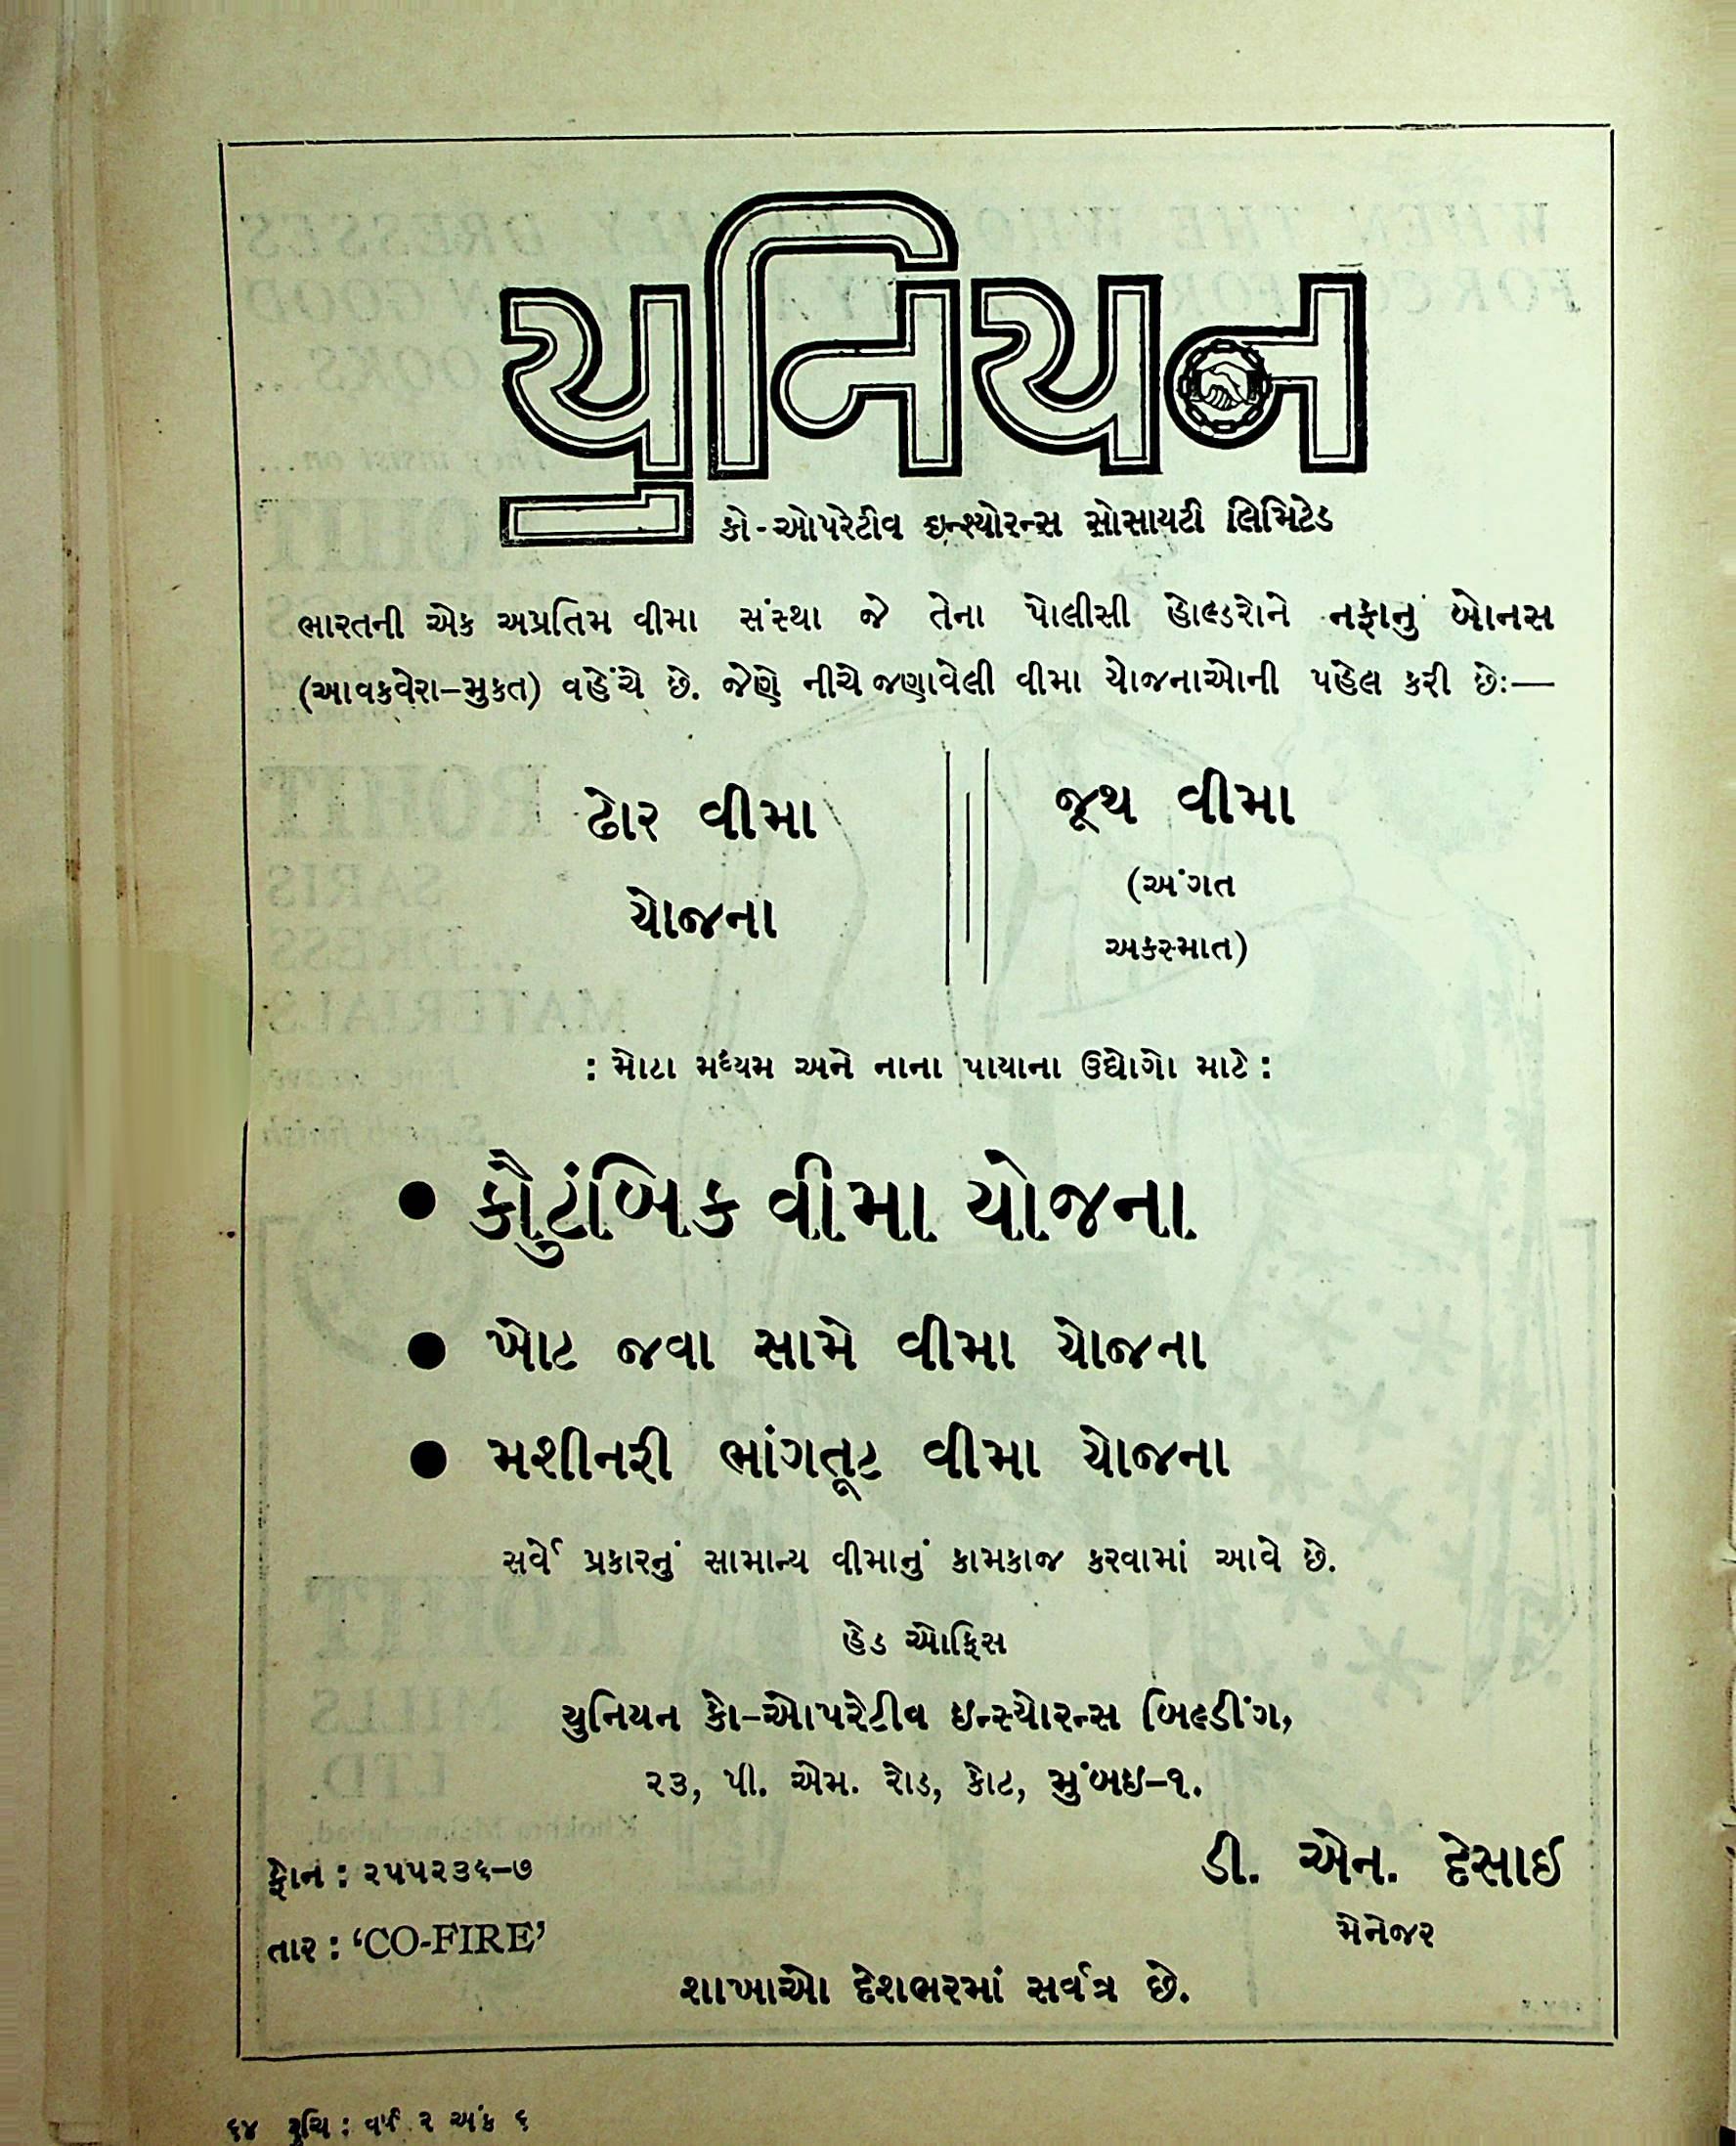 યુનિયન
કો-ઓપરેટીવ ઇન્શ્યોરન્સ સોસાયટી લિમિટેડ
ભારતની એક અપ્રતિમ વીમા સંસ્થા જે તેના પોલીસી હોલ્ડરોને નફાનું બોનસ
(આવકવેરા–મુકત) વહેંચે છે. જેણે નીચે જણાવેલી વીમા યોજનાઓની પહેલ કરી છેઃ—
ઢોર વીમા
યોજના
જૂથ વીમા
(અંગત
અકસ્માત)
: મોટા મધ્યમ અને નાના પાયાના ઉદ્યોગો માટે :
● કૌટુંબિક વીમા યોજના
● ખોટ જવા સામે વીમા યોજના
● મશીનરી ભાંગતૂટ વીમા યોજના
સર્વે પ્રકારનું સામાન્ય વીમાનું કામકાજ કરવામાં આવે છે.
હેડ ઓફિસ
યુનિયન કો–ઓપરેટીવ ઇન્સ્યોરન્સ બિલ્ડીંગ,
૨૩, પી. એમ. રોડ, કોટ, મુંબઇ–૧.
ફોન : ૨૫૫૨૩૬–૭
તાર : ‘CO-FIRE’
ડી. એન. દેસાઈ
મેનેજર
શાખાઓ દેશભરમાં સર્વત્ર છે.
૬૪ રુચિ : વર્ષ ૨ અંક ૬